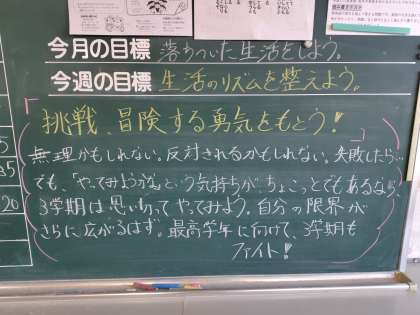 今月の目標 落ちついた生活をしよう。
今週の目標 生活のリズムを整えよう。
挑戦、冒険する勇気をもとう!
無理かもしれない。反対されるかもしれない。失敗したら…
でも、「やってみようかな」という気持ちが、ちょこっとでもあるなら、
3学期は思い切ってやってみよう。自分の限界が
さらに広がるはず。最高学年に向けて、3学期も
ファイト!
5
35
20